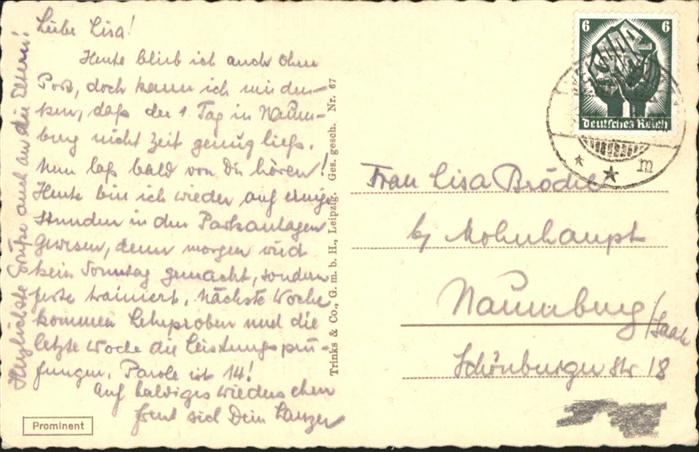 Liebe Lisa!
Heute blieb ich auch ohne
Post, doch kann ich mir den-
ken, daß der 1. Tag in Naum-
burg nicht Zeit genug ließ.
Nun laß bald von Dir hören!
Heute bin ich wieder auf einige
Stunden in den Parkanlagen
gewesen, denn morgen wird
kein Sonntag gemacht, sondern
feste trainiert. Nächste Woche
kommen Lehrproben und die
letzte Woche die Leistungsprü-
fungen. Parole ist 14!
Auf baldiges Wiedersehen
freut sich Dein
Herzlichste Grüße auch an die Eltern!
Prominent
Trinks & Co., G. m. b. H., Leipzig. Ges. gesch. Nr. 67
6 6
Deutsches Reich
m
Frau Lisa
b/ Mohnhaupt
Naumburg/Saale
Schönburger Str 18